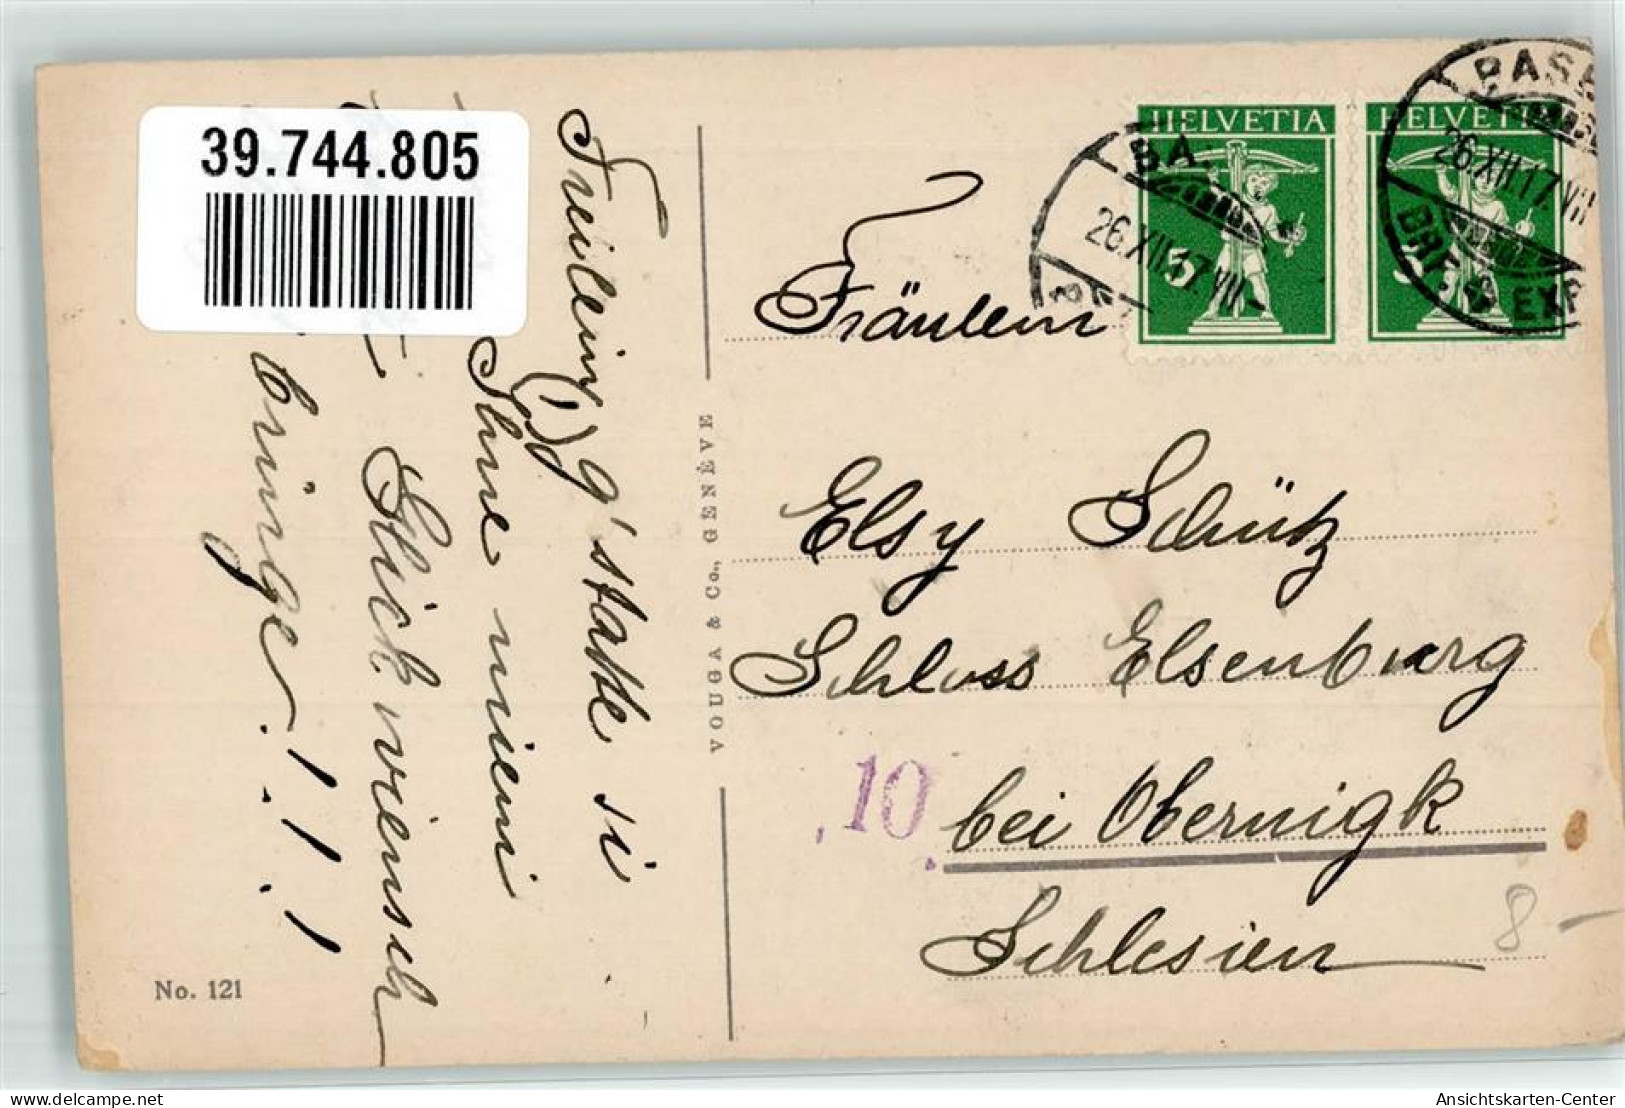 39.744.805
Freiling g'statte si
Ihne mieni
Glick wiensch
bringe!!!
VOUGA & Co., GENÈVE
No. 121
HELVETIA
5
HELVETIA
5
BA
26.XII.17.VII
BASEL
26.XII.17.VII
BRF. EXP
Fräulein
Elsy Schütz
Schloss Elsenburg
.10.
bei Obernigk
Schlesien
8-
Ansichtskarten-Center